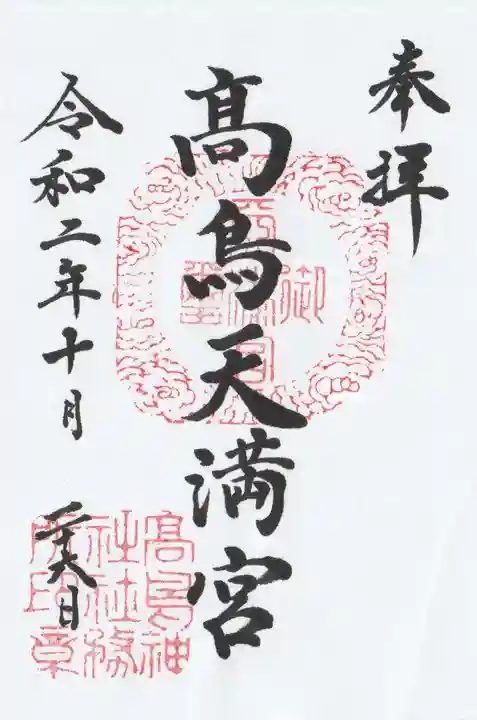 奉拝
髙鳥天満宮
令和二年十月
髙鳥神
社社務
所印章